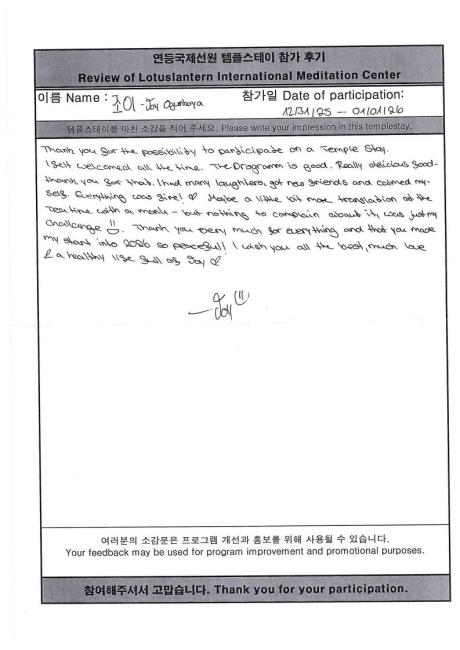 연등국제선원 템플스테이 참가 후기
Review of Lotuslantern International Meditation Center
이름 Name : 조이 - Joy
참가일 Date of participation:
12/31/25 – 01/01/26
템플스테이를 마친 소감을 적어 주세요. Please write your impression in this templestay.
Thank you for the possibility to participate on a Temple Stay.
I felt welcomed all the time. The Programm is good. Really delicious food-
thank you for that. I had many laughters, got new friends and calmed my-
self. Everything was fine! ♡ Maybe a little bit more translation at the
Teatime with a monk – but nothing to complain about it, was just my
challange. Thank you very much for everything and that you made
my start into 2026 so peacefull! I wish you all the best, much love
& a healthy life full of Joy ♡
– Joy
여러분의 소감문은 프로그램 개선과 홍보를 위해 사용될 수 있습니다.
Your feedback may be used for program improvement and promotional purposes.
참여해주셔서 고맙습니다. Thank you for your participation.